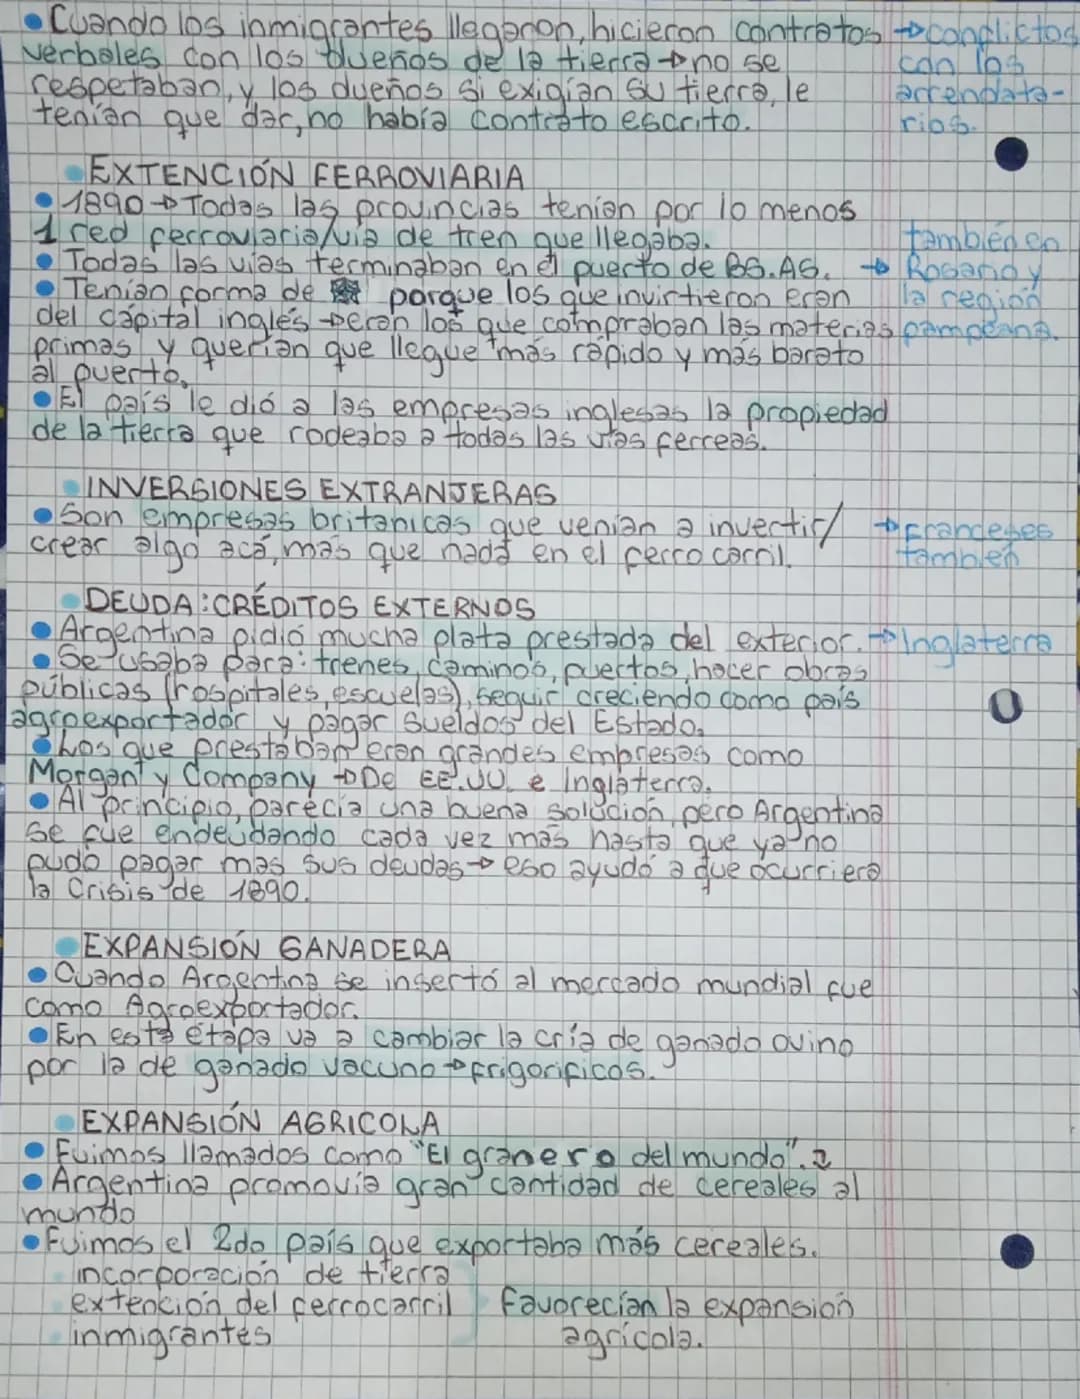 • Cuando los inmigrantes llegaron, hicieron contratos → conflictos
verbales con los dueños de la tierra → no se con los
respetaban, y los dueños si exigían su tierra, le arrendata-
tenían que dar, no había contrato escrito. rios.
• EXTENCIÓN FERROVIARIA
• 1890 → Todas las provincias tenían por lo menos
1 red ferroviaria/vía de tren que llegaba. también en
• Todas las vías terminaban en el puerto de BS.AS. → Rosario y
• Tenían forma de porque los que invirtieron eran la región
del cápital inglés → eran los que compraban las materias pampeana.
primas y querían que llegue más rápido y más barato
al puerto.
• El país le dió a las empresas inglesas la propiedad
de la tierra que rodeaba a todas las vías ferreas.
• INVERSIONES EXTRANJERAS
• Son empresas britanicas que venían a invertir/ → franceses
crear algo acá, más que nada en el ferrocarril. también
• DEUDA: CRÉDITOS EXTERNOS
• Argentina pidió mucha plata prestada del exterior. → Inglaterra
• Se usaba para: trenes, caminos, puertos, hacer obras
públicas (hospitales, escuelas), seguir creciendo como país
agroexportador y pagar sueldos del Estado.
• Los que prestaban eran grandes empresas como
Morgan y Company → De EE.UU. e Inglaterra.
• Al principio, parecía una buena solución, pero Argentina
se fue endeudando cada vez más hasta que ya no
pudo pagar mas sus deudas → eso ayudó a que ocurriera
la Crisis de 1890.
• EXPANSIÓN GANADERA
• Cuando Argentina se insertó al mercado mundial fue
como Agroexportador.
• En esta etapa va a cambiar la cría de ganado ovino
por la de ganado vacuno → frigoríficos.
• EXPANSIÓN AGRICOLA
• Fuimos llamados como "El granero del mundo".
• Argentina promovía gran cantidad de cereales al
mundo
• Fuimos el 2do país que exportaba más cereales.
incorporación de tierra
extención del ferrocarril } Favorecían la expansión
inmigrantes agrícola.